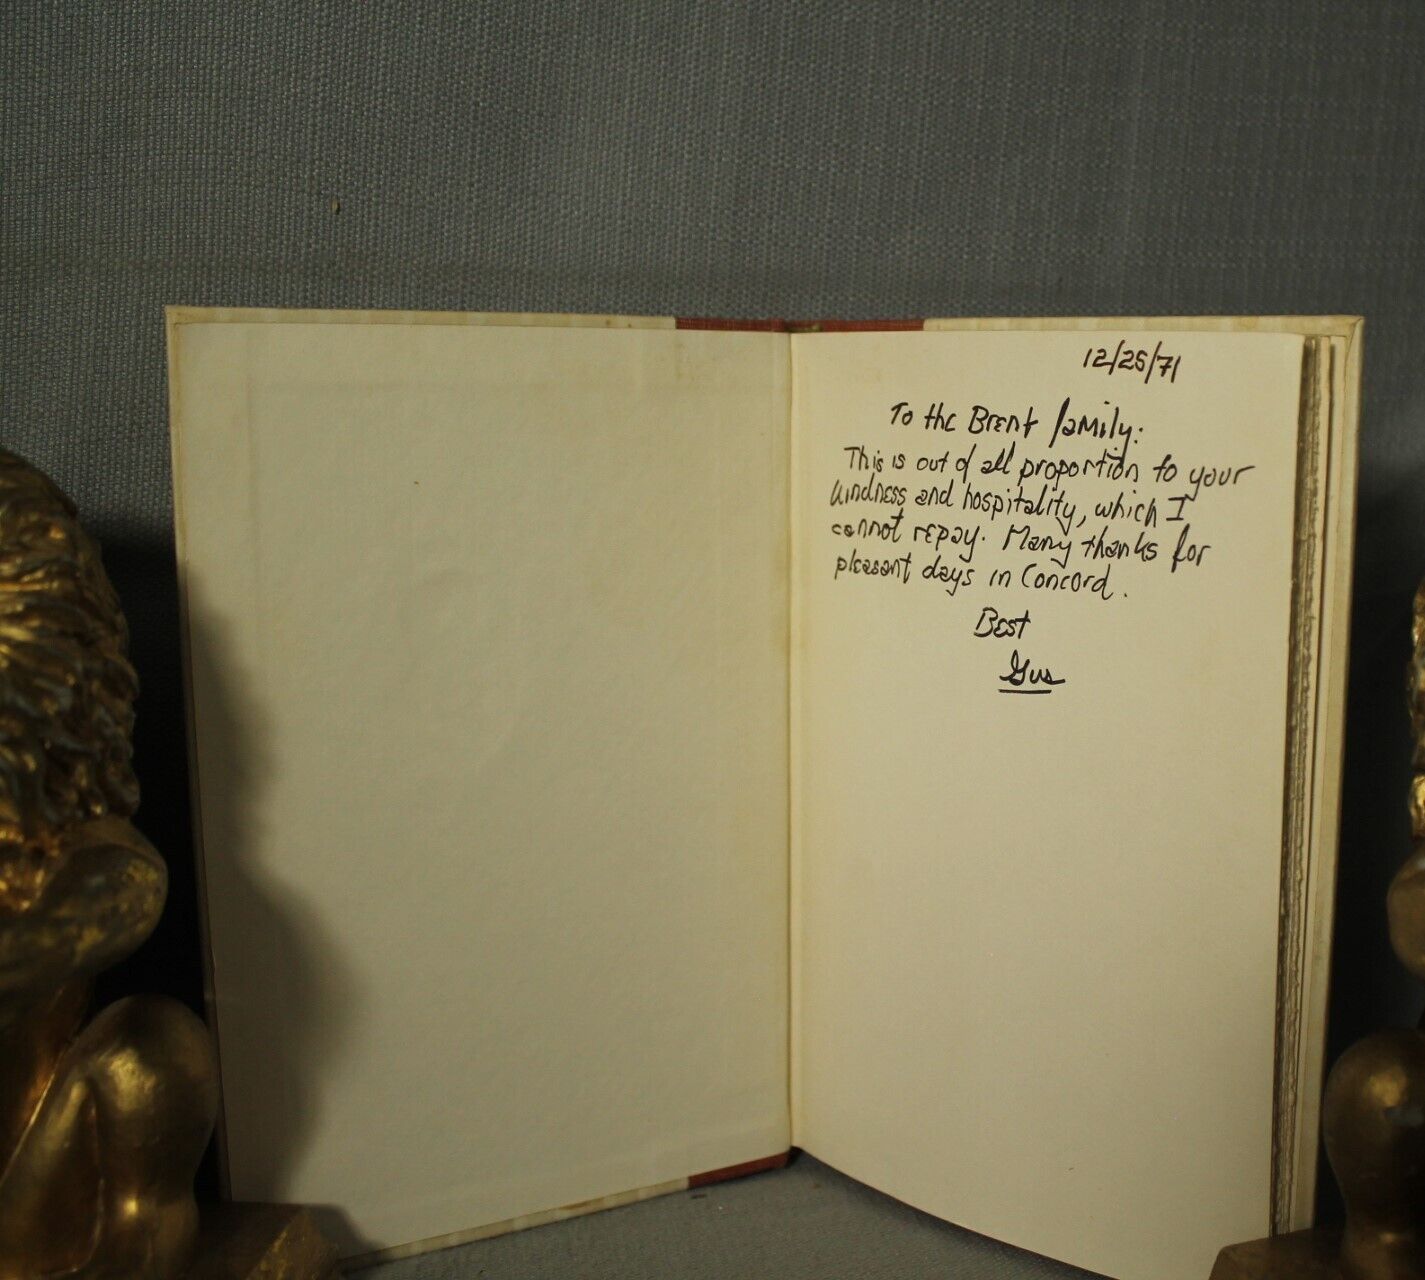 12/25/71
To the Brent family:
This is out of all proportion to your
kindness and hospitality, which I
cannot repay. Many thanks for
pleasant days in Concord.
Best
Gus